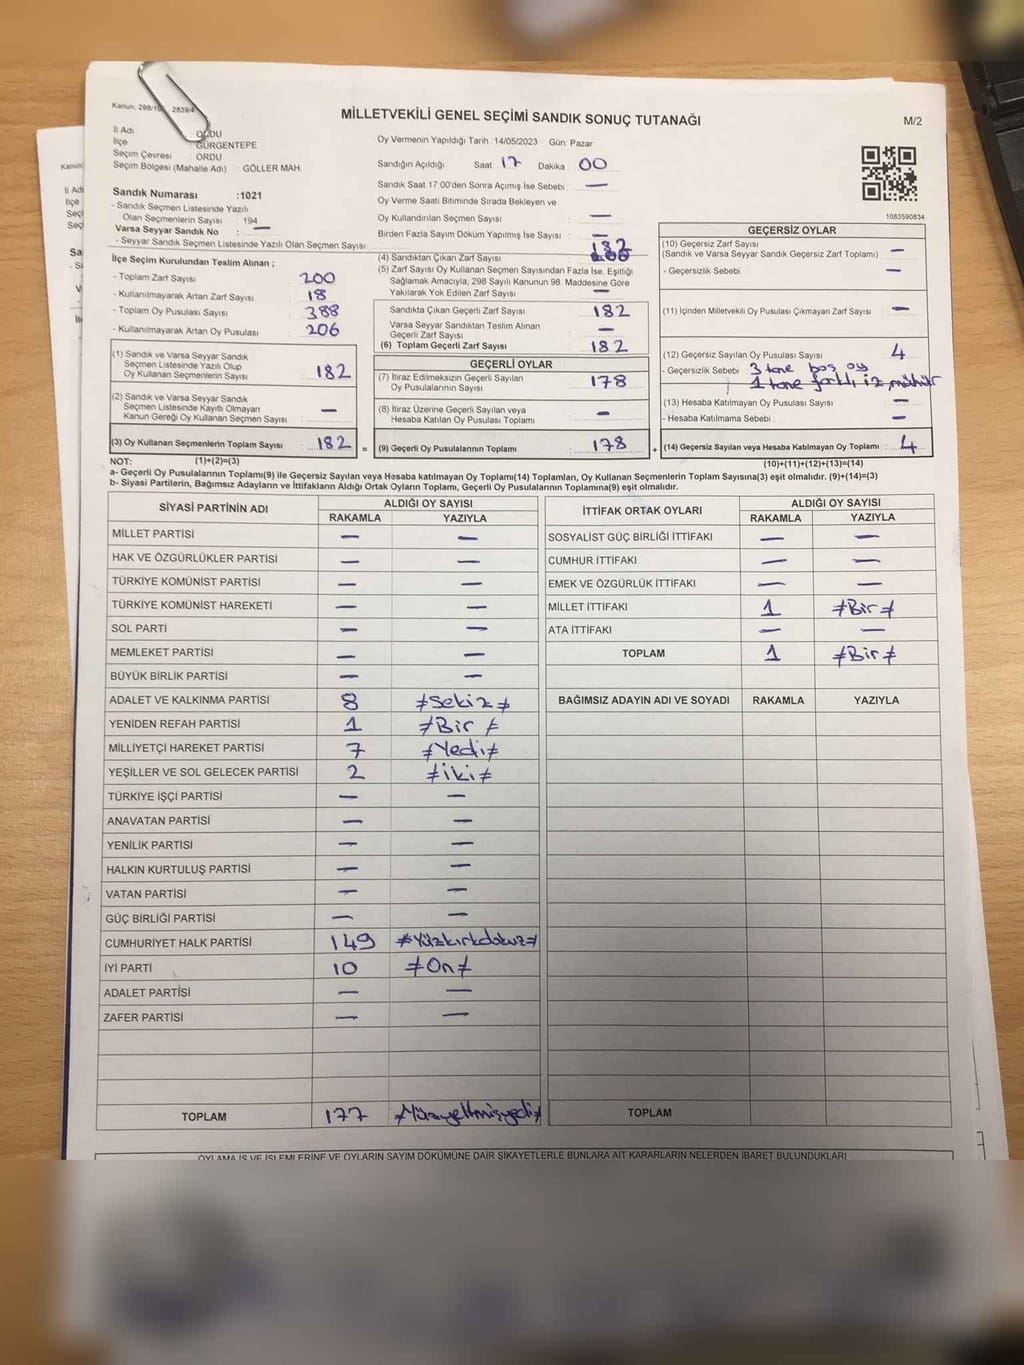 Kanun; 298/10 2839/4
MİLLETVEKİLİ GENEL SEÇİMİ SANDIK SONUÇ TUTANAĞI
M/2
İl Adı : ORDU
İlçe GÜRGENTEPE
Seçim Çevresi : ORDU
Seçim Bölgesi (Mahalle Adı) : GÖLLER MAH
Sandık Numarası :1021
- Sandık Seçmen Listesinde Yazılı
Olan Seçmenlerin Sayısı : 194
Varsa Seyyar Sandık No : —
- Seyyar Sandık Seçmen Listesinde Yazılı Olan Seçmen Sayısı
Oy Vermenin Yapıldığı Tarih :14/05/2023 Gün: Pazar
Sandığın Açıldığı Saat: 17 Dakika : 00
Sandık Saat 17:00'den Sonra Açılmış İse Sebebi : —
Oy Verme Saati Bitiminde Sırada Bekleyen ve
Oy Kullandırılan Seçmen Sayısı : —
Birden Fazla Sayım Döküm Yapılmış İse Sayısı : —
1083590834
İlçe Seçim Kurulundan Teslim Alınan ;
- Toplam Zarf Sayısı : 200
- Kullanılmayarak Artan Zarf Sayısı : 18
- Toplam Oy Pusulası Sayısı : 388
- Kullanılmayarak Artan Oy Pusulası : 206
(1) Sandık ve Varsa Seyyar Sandık
Seçmen Listesinde Yazılı Olup
Oy Kullanan Seçmenlerin Sayısı : 182
(2) Sandık ve Varsa Seyyar Sandık
Seçmen Listesinde Kayıtlı Olmayan
Kanun Gereği Oy Kullanan Seçmen Sayısı : —
(3) Oy Kullanan Seçmenlerin Toplam Sayısı : 182 =
(4) Sandıktan Çıkan Zarf Sayısı : 182
(5) Zarf Sayısı Oy Kullanan Seçmen Sayısından Fazla İse, Eşitliği
Sağlamak Amacıyla, 298 Sayılı Kanunun 98. Maddesine Göre
Yakılarak Yok Edilen Zarf Sayısı : —
Sandıkta Çıkan Geçerli Zarf Sayısı : 182
Varsa Seyyar Sandıktan Teslim Alınan
Geçerli Zarf Sayısı : —
(6) Toplam Geçerli Zarf Sayısı : 182
GEÇERLİ OYLAR
(7) İtiraz Edilmeksizin Geçerli Sayılan
Oy Pusulalarının Sayısı : 178
(8) İtiraz Üzerine Geçerli Sayılan veya
Hesaba Katılan Oy Pusulaları Toplamı : —
(9) Geçerli Oy Pusulalarının Toplamı : 178 +
GEÇERSİZ OYLAR
(10) Geçersiz Zarf Sayısı —
(Sandık ve Varsa Seyyar Sandık Geçersiz Zarf Toplamı) :
- Geçersizlik Sebebi : —
(11) İçinden Milletvekili Oy Pusulası Çıkmayan Zarf Sayısı : —
(12) Geçersiz Sayılan Oy Pusulası Sayısı : 4
- Geçersizlik Sebebi 3 tane boş oy
1 tane farklı iz mühür
(13) Hesaba Katılmayan Oy Pusulası Sayısı : —
- Hesaba Katılmama Sebebi : —
(14) Geçersiz Sayılan veya Hesaba Katılmayan Oy Toplamı : 4
NOT: (1)+(2)=(3)
(10)+(11)+(12)+(13)=(14)
a- Geçerli Oy Pusulalarının Toplamı(9) ile Geçersiz Sayılan veya Hesaba katılmayan Oy Toplamı(14) Toplamları, Oy Kullanan Seçmenlerin Toplam Sayısına(3) eşit olmalıdır. (9)+(14)=(3)
b- Siyasi Partilerin, Bağımsız Adayların ve İttifakların Aldığı Ortak Oyların Toplamı, Geçerli Oy Pusulalarının Toplamına(9) eşit olmalıdır.
SİYASİ PARTİNİN ADI ALDIĞI OY SAYISI
RAKAMLA YAZIYLA
MİLLET PARTİSİ — —
HAK VE ÖZGÜRLÜKLER PARTİSİ — —
TÜRKİYE KOMÜNİST PARTİSİ — —
TÜRKİYE KOMÜNİST HAREKETİ — —
SOL PARTİ — —
MEMLEKET PARTİSİ — —
BÜYÜK BİRLİK PARTİSİ — —
ADALET VE KALKINMA PARTİSİ 8 ≠Sekiz≠
YENİDEN REFAH PARTİSİ 1 ≠Bir≠
MİLLİYETÇİ HAREKET PARTİSİ 7 ≠Yedi≠
YEŞİLLER VE SOL GELECEK PARTİSİ 2 ≠iki≠
TÜRKİYE İŞÇİ PARTİSİ — —
ANAVATAN PARTİSİ — —
YENİLİK PARTİSİ — —
HALKIN KURTULUŞ PARTİSİ — —
VATAN PARTİSİ — —
GÜÇ BİRLİĞİ PARTİSİ — —
CUMHURİYET HALK PARTİSİ 149 ≠Yüzkırkdokuz≠
İYİ PARTİ 10 ≠On≠
ADALET PARTİSİ — —
ZAFER PARTİSİ — —
TOPLAM 177 ≠Yüzyetmişyedi≠
İTTİFAK ORTAK OYLARI ALDIĞI OY SAYISI
RAKAMLA YAZIYLA
SOSYALİST GÜÇ BİRLİĞİ İTTİFAKI — —
CUMHUR İTTİFAKI — —
EMEK VE ÖZGÜRLÜK İTTİFAKI — —
MİLLET İTTİFAKI 1 ≠Bir≠
ATA İTTİFAKI — —
TOPLAM 1 ≠Bir≠
BAĞIMSIZ ADAYIN ADI VE SOYADI RAKAMLA YAZIYLA
TOPLAM
OYLAMA İŞ VE İŞLEMLERİNE VE OYLARIN SAYIM DÖKÜMÜNE DAİR ŞİKAYETLERLE BUNLARA AİT KARARLARIN NELERDEN İBARET BULUNDUKLARI